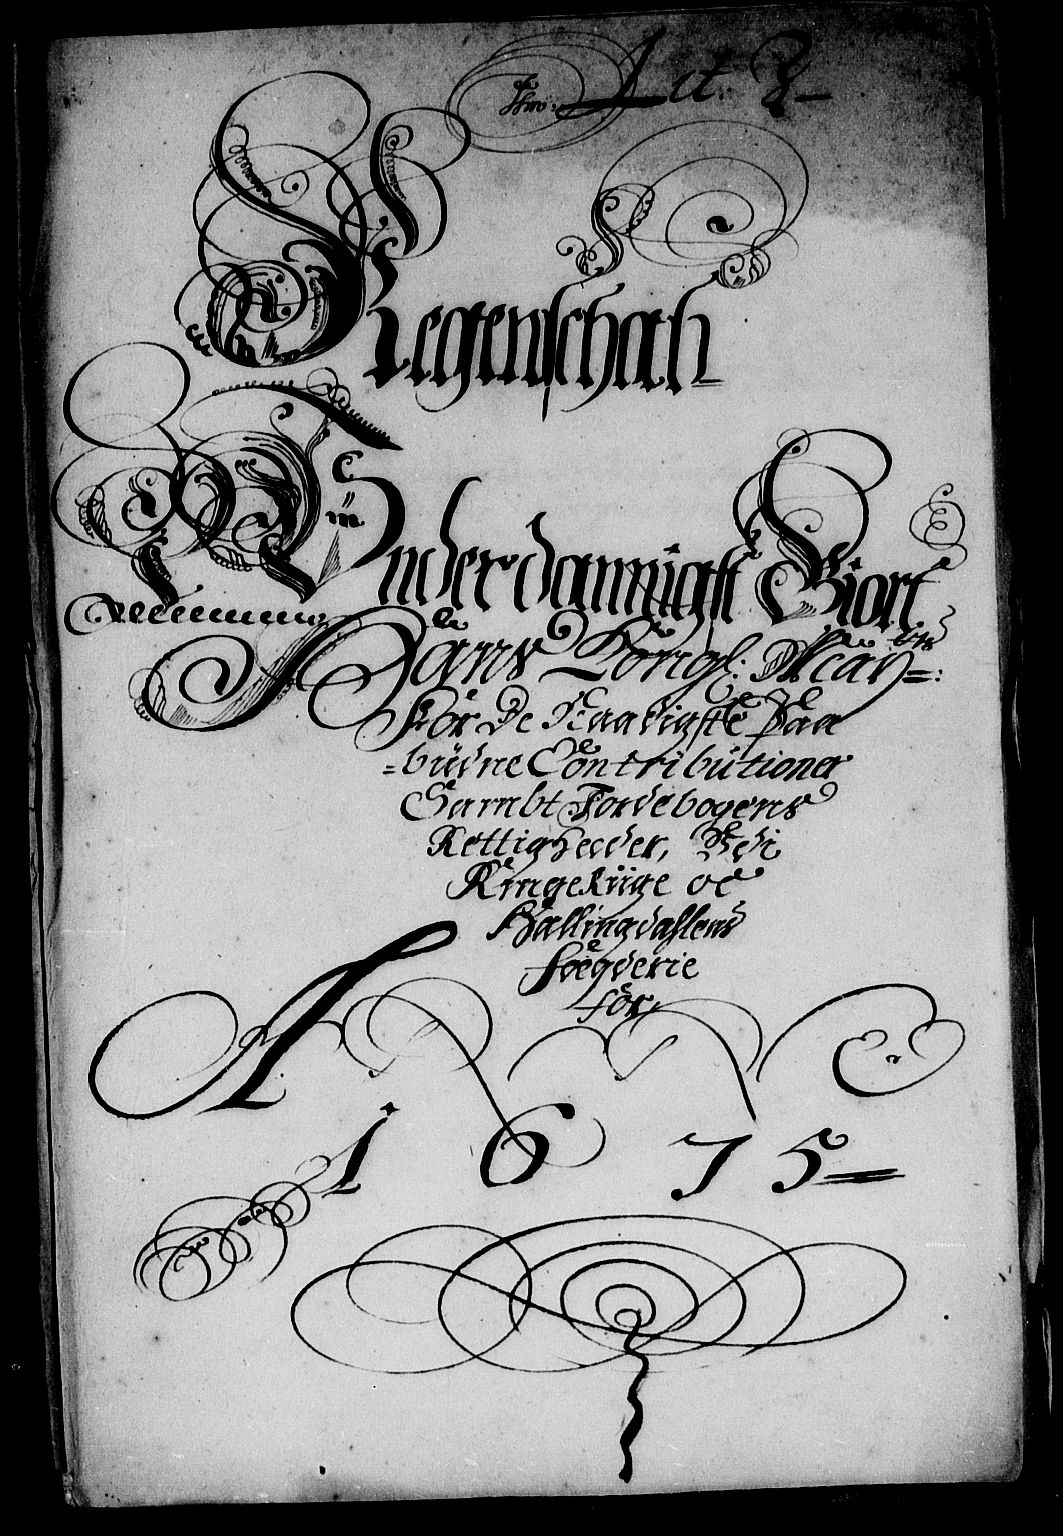 Lit: 
Regenschab
Underdannigst Giort
Hans Kongl: May:
For De Naadigste Paa
=budne Contributioner
Sambt Jordebogens
Rettigheder, Udi
Ringeriige oc
Hallingdahlens
fogderie
for,
A
1675